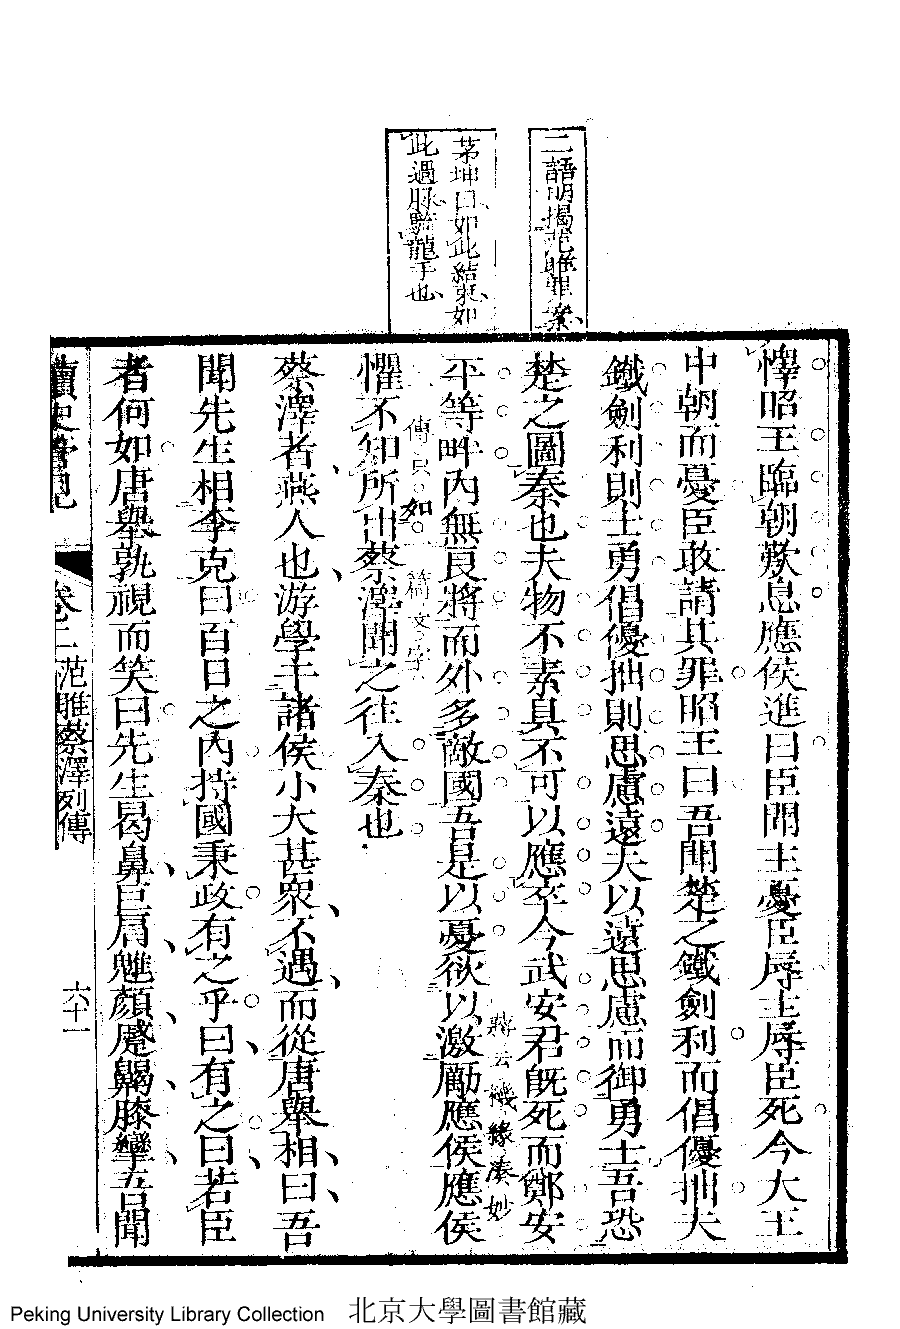 二語明揭范睢罪案
茅坤曰如此結束如
此過脉騎龍手也
懌昭王臨朝歎息應侯進曰臣聞主憂臣辱主辱臣死今大王
中朝而憂臣敢請其罪昭王曰吾聞楚之鐵劍利而倡優拙夫
鐵劍利則士勇倡優拙則思慮遠夫以遠思慮而御勇士吾恐
楚之圖秦也夫物不素具不可以應卒今武安君既死而鄭安
蔣云機緣湊妙
平等畔內無良將而外多敵國吾是以憂欲以激勵應侯應侯
懼不知所出蔡澤聞之往入秦也
蔡澤者燕人也游學干諸侯小大甚衆不遇而從唐舉相曰吾
聞先生相李兌曰百日之內持國秉政有之乎曰有之曰若臣
者何如唐舉孰視而笑曰先生曷鼻巨肩魋顏蹙齃膝攣吾聞
卷二 范睢蔡澤列傳
六十一
Peking University Library Collection 北京大學圖書館藏